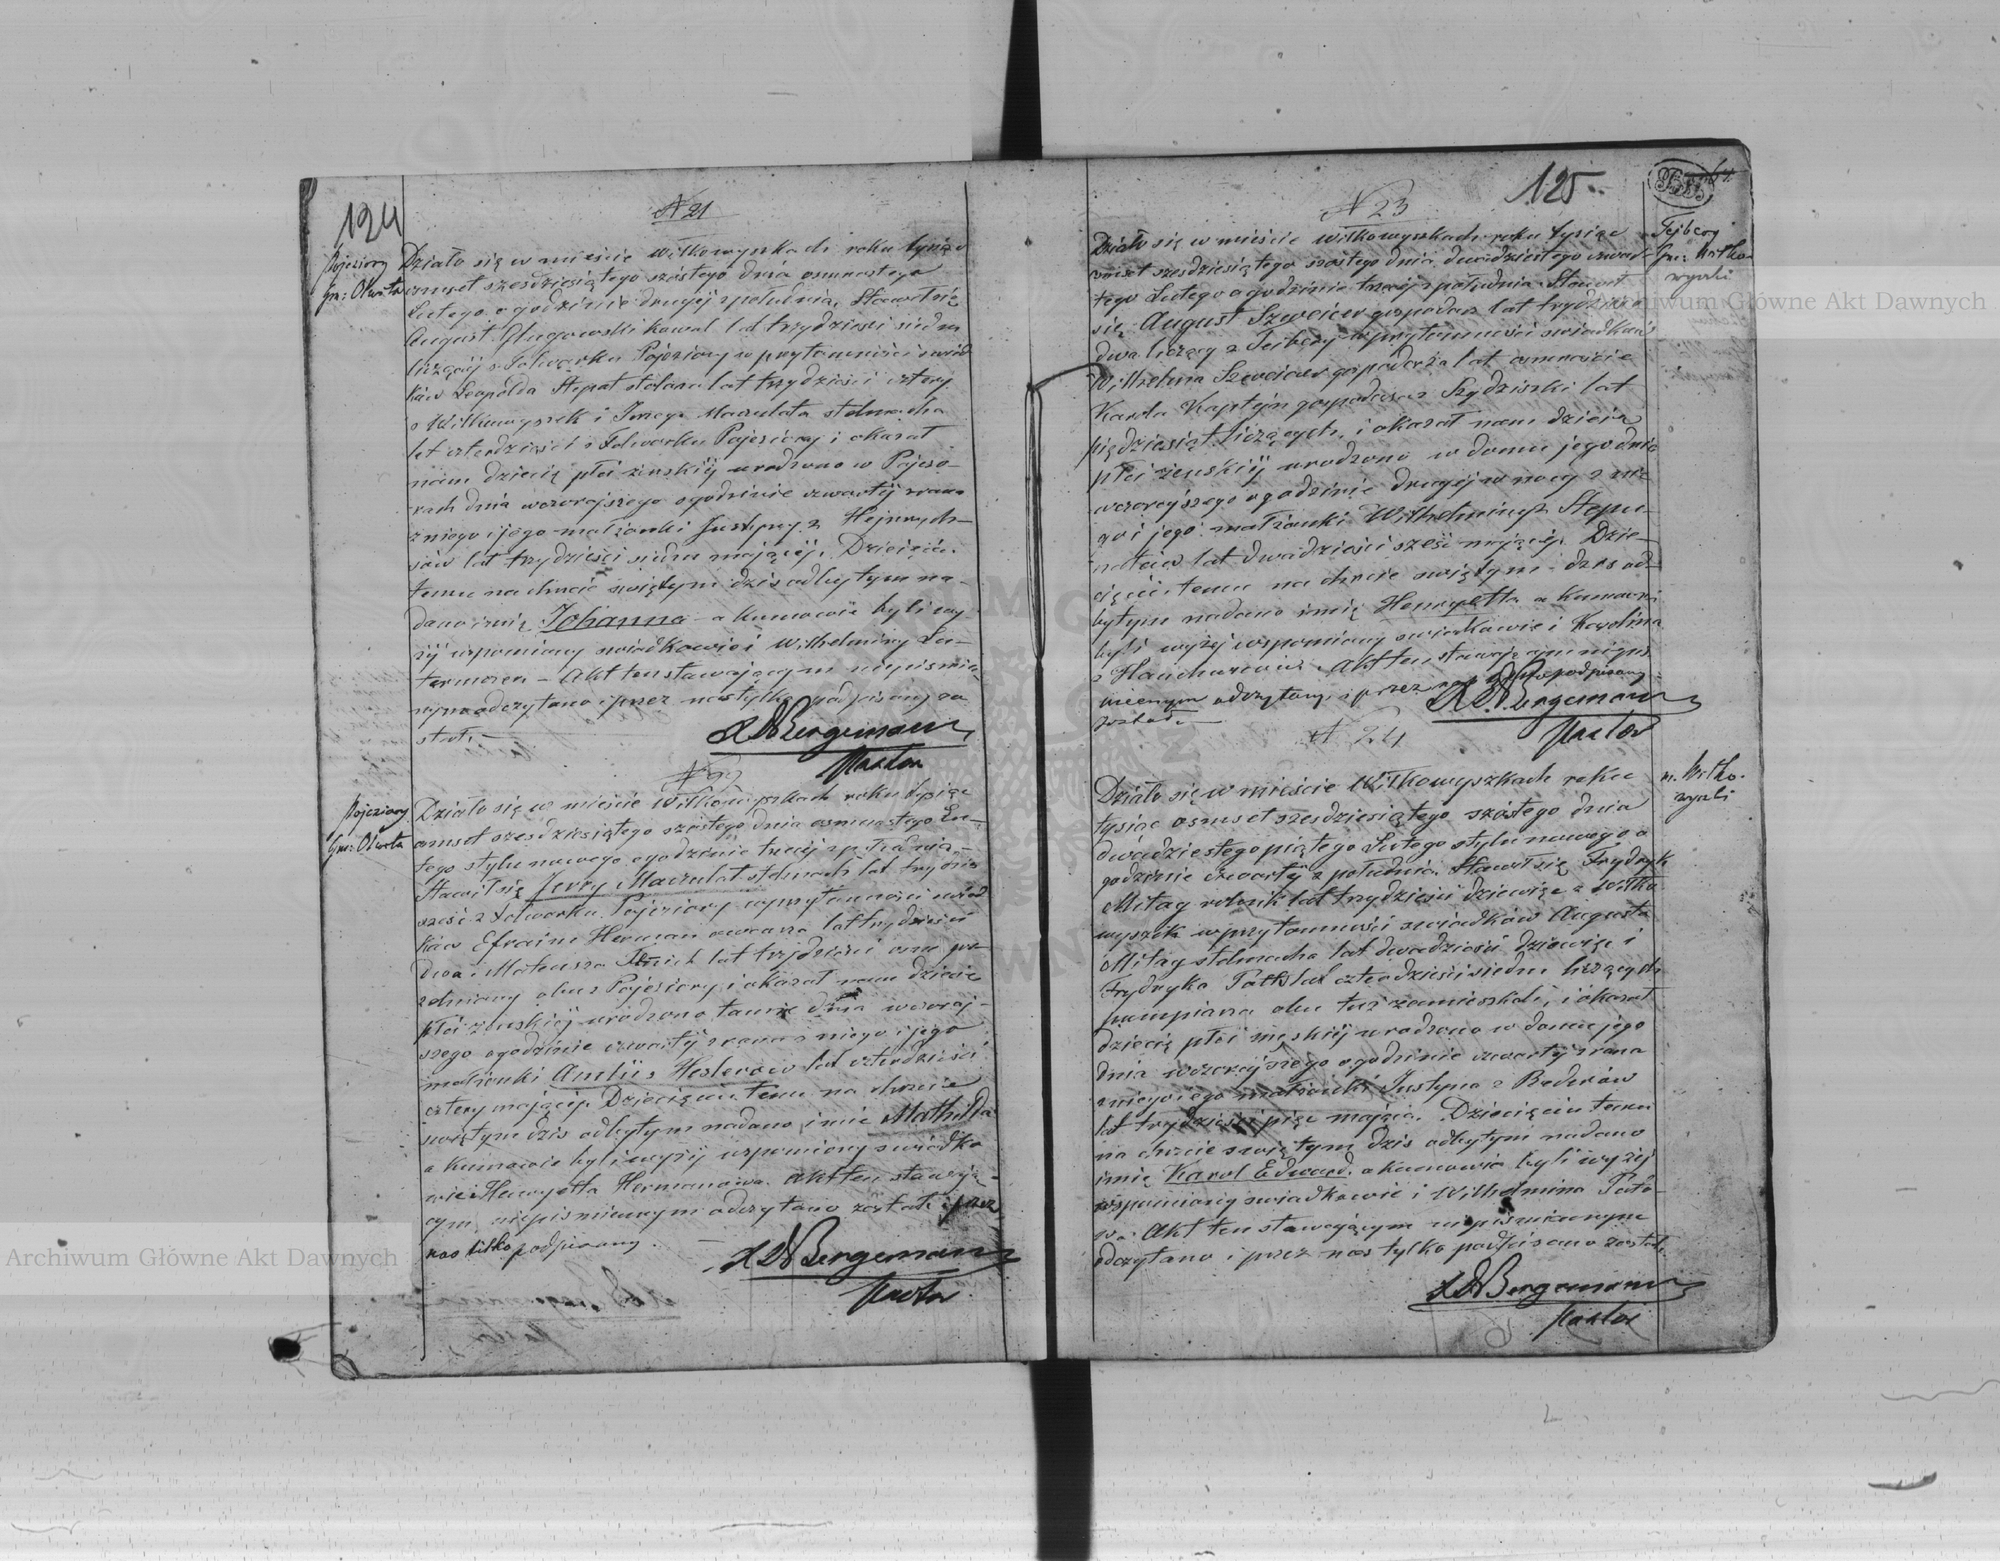 124
N 21
Pojeziory
Gm: Olwita
Działo się w mieście Wiłkowyszkach roku tysiąc
ośmset szesdziesiątego szóstego dnia osmnastego
Lutego o godzinie drugiej z południa. Stawił się
August Glugowski kowal lat trzydzieści siedm
liczący z Folwarku Pojeziory w przytomności świad
ków Leopolda Stepat stolarza lat trzydzieści cztery
z Wiłkowyszek i Jerzego Maczulata stelmacha
lat czterdzieści z Folwarku Pojeziory i okazał
nam dziecię płci żenskiej urodzone w Pojezo-
rach dnia wczorajszego o godzinie czwartej z rana
z niego i jego małżonki Justyny z Hejnrych-
sów lat trzydzieści siedm mającej. Dziecięciu
temu na chrcie świętym dzis odbytym na-
dano imię Johanna a kumowie byli wy-
żej wspomiany swiadkowie i Wilhelminy
Akt ten stawającym niepismie-
nym odczytano i przez nas tylko podpisany zo
stał. —
A D Bergemann
Pastor
N 22
Pojeziory
Gm: Olwita
Działo się w mieście Wiłkowyszkach roku tysiąc
ośmset szesdziesiątego szóstego dnia osmnastego Lu-
tego stylu nowego o godzinie trzeciej z południa.
Stawił się Jerzy Maczulat stelmach lat trzydzieści
sześć z Folwarku Pojeziory w przytomności świad
ków Efraim Herman owczarza lat trzydzieści
dwa i Mateusza lat trzydzieści osm
obu z Pojeziory i okazał nam dziecię
płci żenskiej urodzone tamże dnia wczoraj-
szego o godzinie czwartej z rana z niego i jego
małżonki Amlii z Heslerów lat czterdzieści
cztery mającej. Dziecięciu temu na chrzcie
swiętym dzis odbytym nadano imie Mathilda
a kumowie byli wyżej wspomiany swiadko
wie i Henryetta Hermanowa. Akt ten stawają-
cym niepismiennym odczytano został i przez
nas tilko podpisany.
A D Bergemann
Pastor
125
N 23
Fejbery
Gm: Wiłko
wyszki
Działo się w mieście Wiłkowyszkach roku tysiąc
ośmset szesdziesiątego szostego dnia dwudziestego czwar
tego Lutego o godzinie trzeciej z południa Stawił
się August Szweicer gospodarz lat trzydzieści
dwa liczący z Fejbery w przytomności swiadków
Wilhelma Szweicer gospodarza lat
Karla Kaptÿn gospodarza z Szydziszki lat
pięćdziesiąt liczących, i okazał nam dziecię
płci zienskiej urodzone w domu jego dnia
wczorajszego o godzinie drugiej w nocy z nie
go i jego małżonki Wilhelminy z Stepu-
natów lat dwadzieści sześć mającej. Dzie-
cięciu temu na chrcie swiętym dzis od-
bytym nadano imię Henryetta a kumowie
byli wyżej wspomiany swiadkowie i Karolina
Akt ten stawającym niepis
miennym odczytany i przez nas tylko podpisany
został. —
A D Bergemann
Pastor
N 24
m. Wiłko-
wyszki
Działo się w mieście Wiłkowyszkach roku
tysiąc osmset szesdziesiątego szóstego dnia
dwudziestego piątego Lutego stylu nowego o
godzinie czwartej z południa. Stawił się Frydryk
Mitag rolnik lat trzydzieści dziewięc z Wiłko
wyszek w przytomności swiadków Augusta
Mitag stelmacha lat dwadzieści dziewięc i
Frydryka lat czterdzieści siedm liczących
obu tuż zamieszkali, i okazał
dziecię płci męskiej urodzone w domu jego
dnia wczorajszego o godzinie czwartej z rana
z niego i jego małżonki Justyna z Bederów
lat trzydzieści pięc mająca. Dziecięciu temu
na chrzcie swiętym dzis odbytym nadano
imię Karol Edward. a kumowie byli wyżej
wspomiany swiadkowie i Wilhelmina
Akt ten stawającym niepismiennym
odczytano i przez nas tylko podpisano został.
A D Bergemann
Pastor
Archiwum Główne Akt Dawnych
Archiwum Główne Akt Dawnych